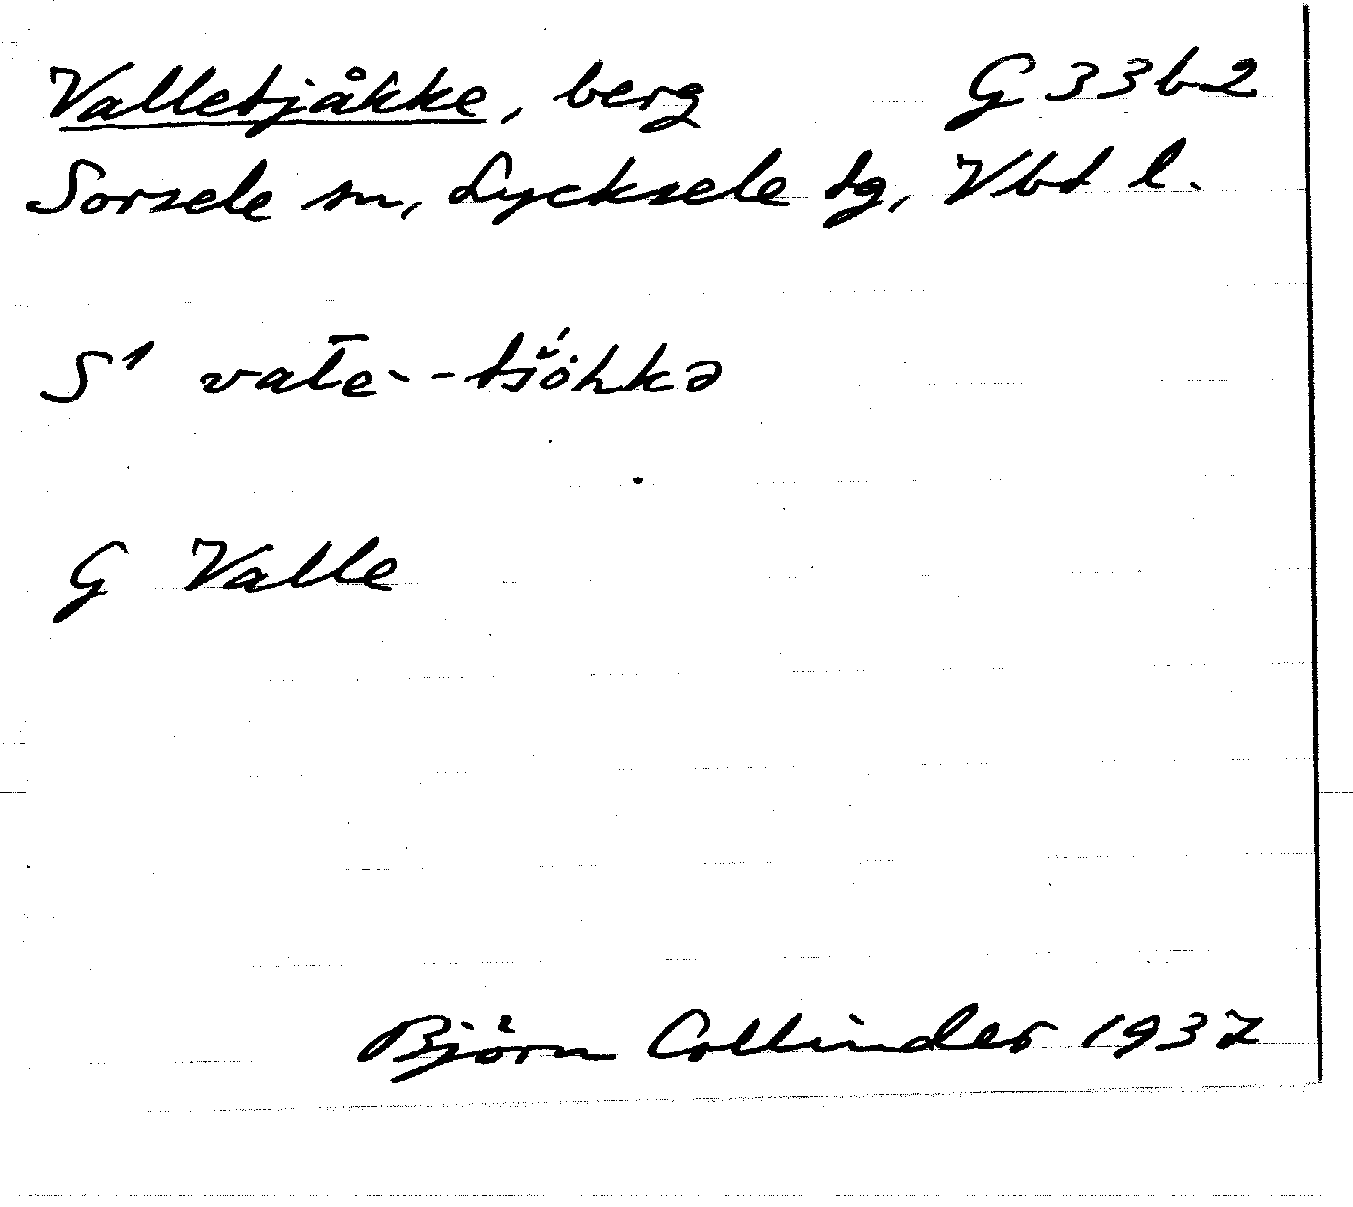 Valletjåkke, berg G 33b2
Sorsele sn, Lycksele tg, Vbt l.
S1 val̄e--tšö́hkə
G Valle
Björn Collinder 1937